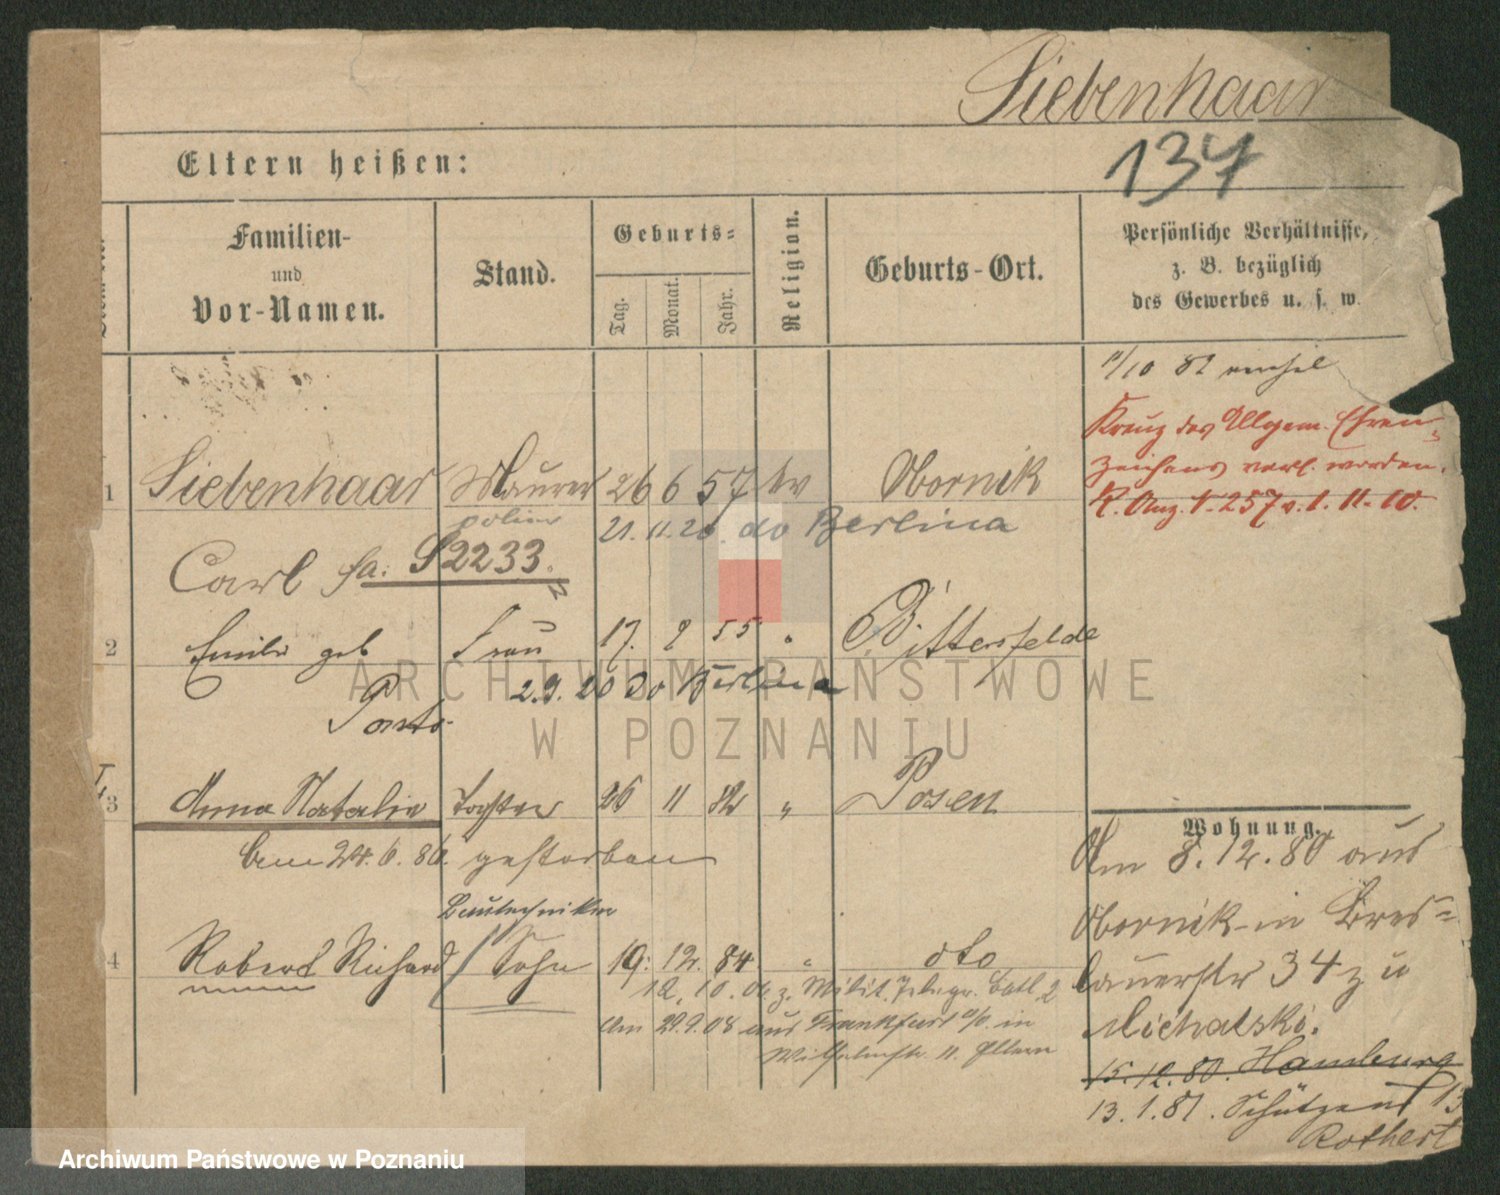 Siebenhaar
137
Eltern heißen:
Familien- und Vor-Namen.
Stand.
Geburts-
Tag.
Monat.
Jahr.
Religion.
Geburts-Ort.
Persönliche Verhältnisse,
z. B. bezüglich
des Gewerbes u. s. w.
1/10 82
Kreuz des Allgem. Ehren-
zeichens verl. worden.
R. Anz. N. 257 v. 1. 11. 10.
1 Siebenhaar Maurer 26 6 57 ev Obornik
21. 11. 20. do Berlina
Carl fa: S2233.
2 Emilie geb Frau 17. 2 55 " Bitterfelde
2. 9. 20 do Berlina
3 Anna Natalie Tochter 26 11 82 " Posen
am 24. 6. 86. gestorben
Bautechniker
4 Robert Richard / Sohn 19. 12. 84 " dto
12. 10. 06 z. Milit. Telegr. Batl. 2
Am 29. 9 08 aus Frankfurt a/O. in
Wilhelmstr. 11. Eltern
Wohnung.
Am 8. 12. 80 aus
Obornik in Bres-
lauerstr 34 zu
Michalski.
15. 12. 80. Hamburg
13. 1. 81. Schützenst 13
Rothert
ARCHIWUM PAŃSTWOWE
W POZNANIU
Archiwum Państwowe w Poznaniu